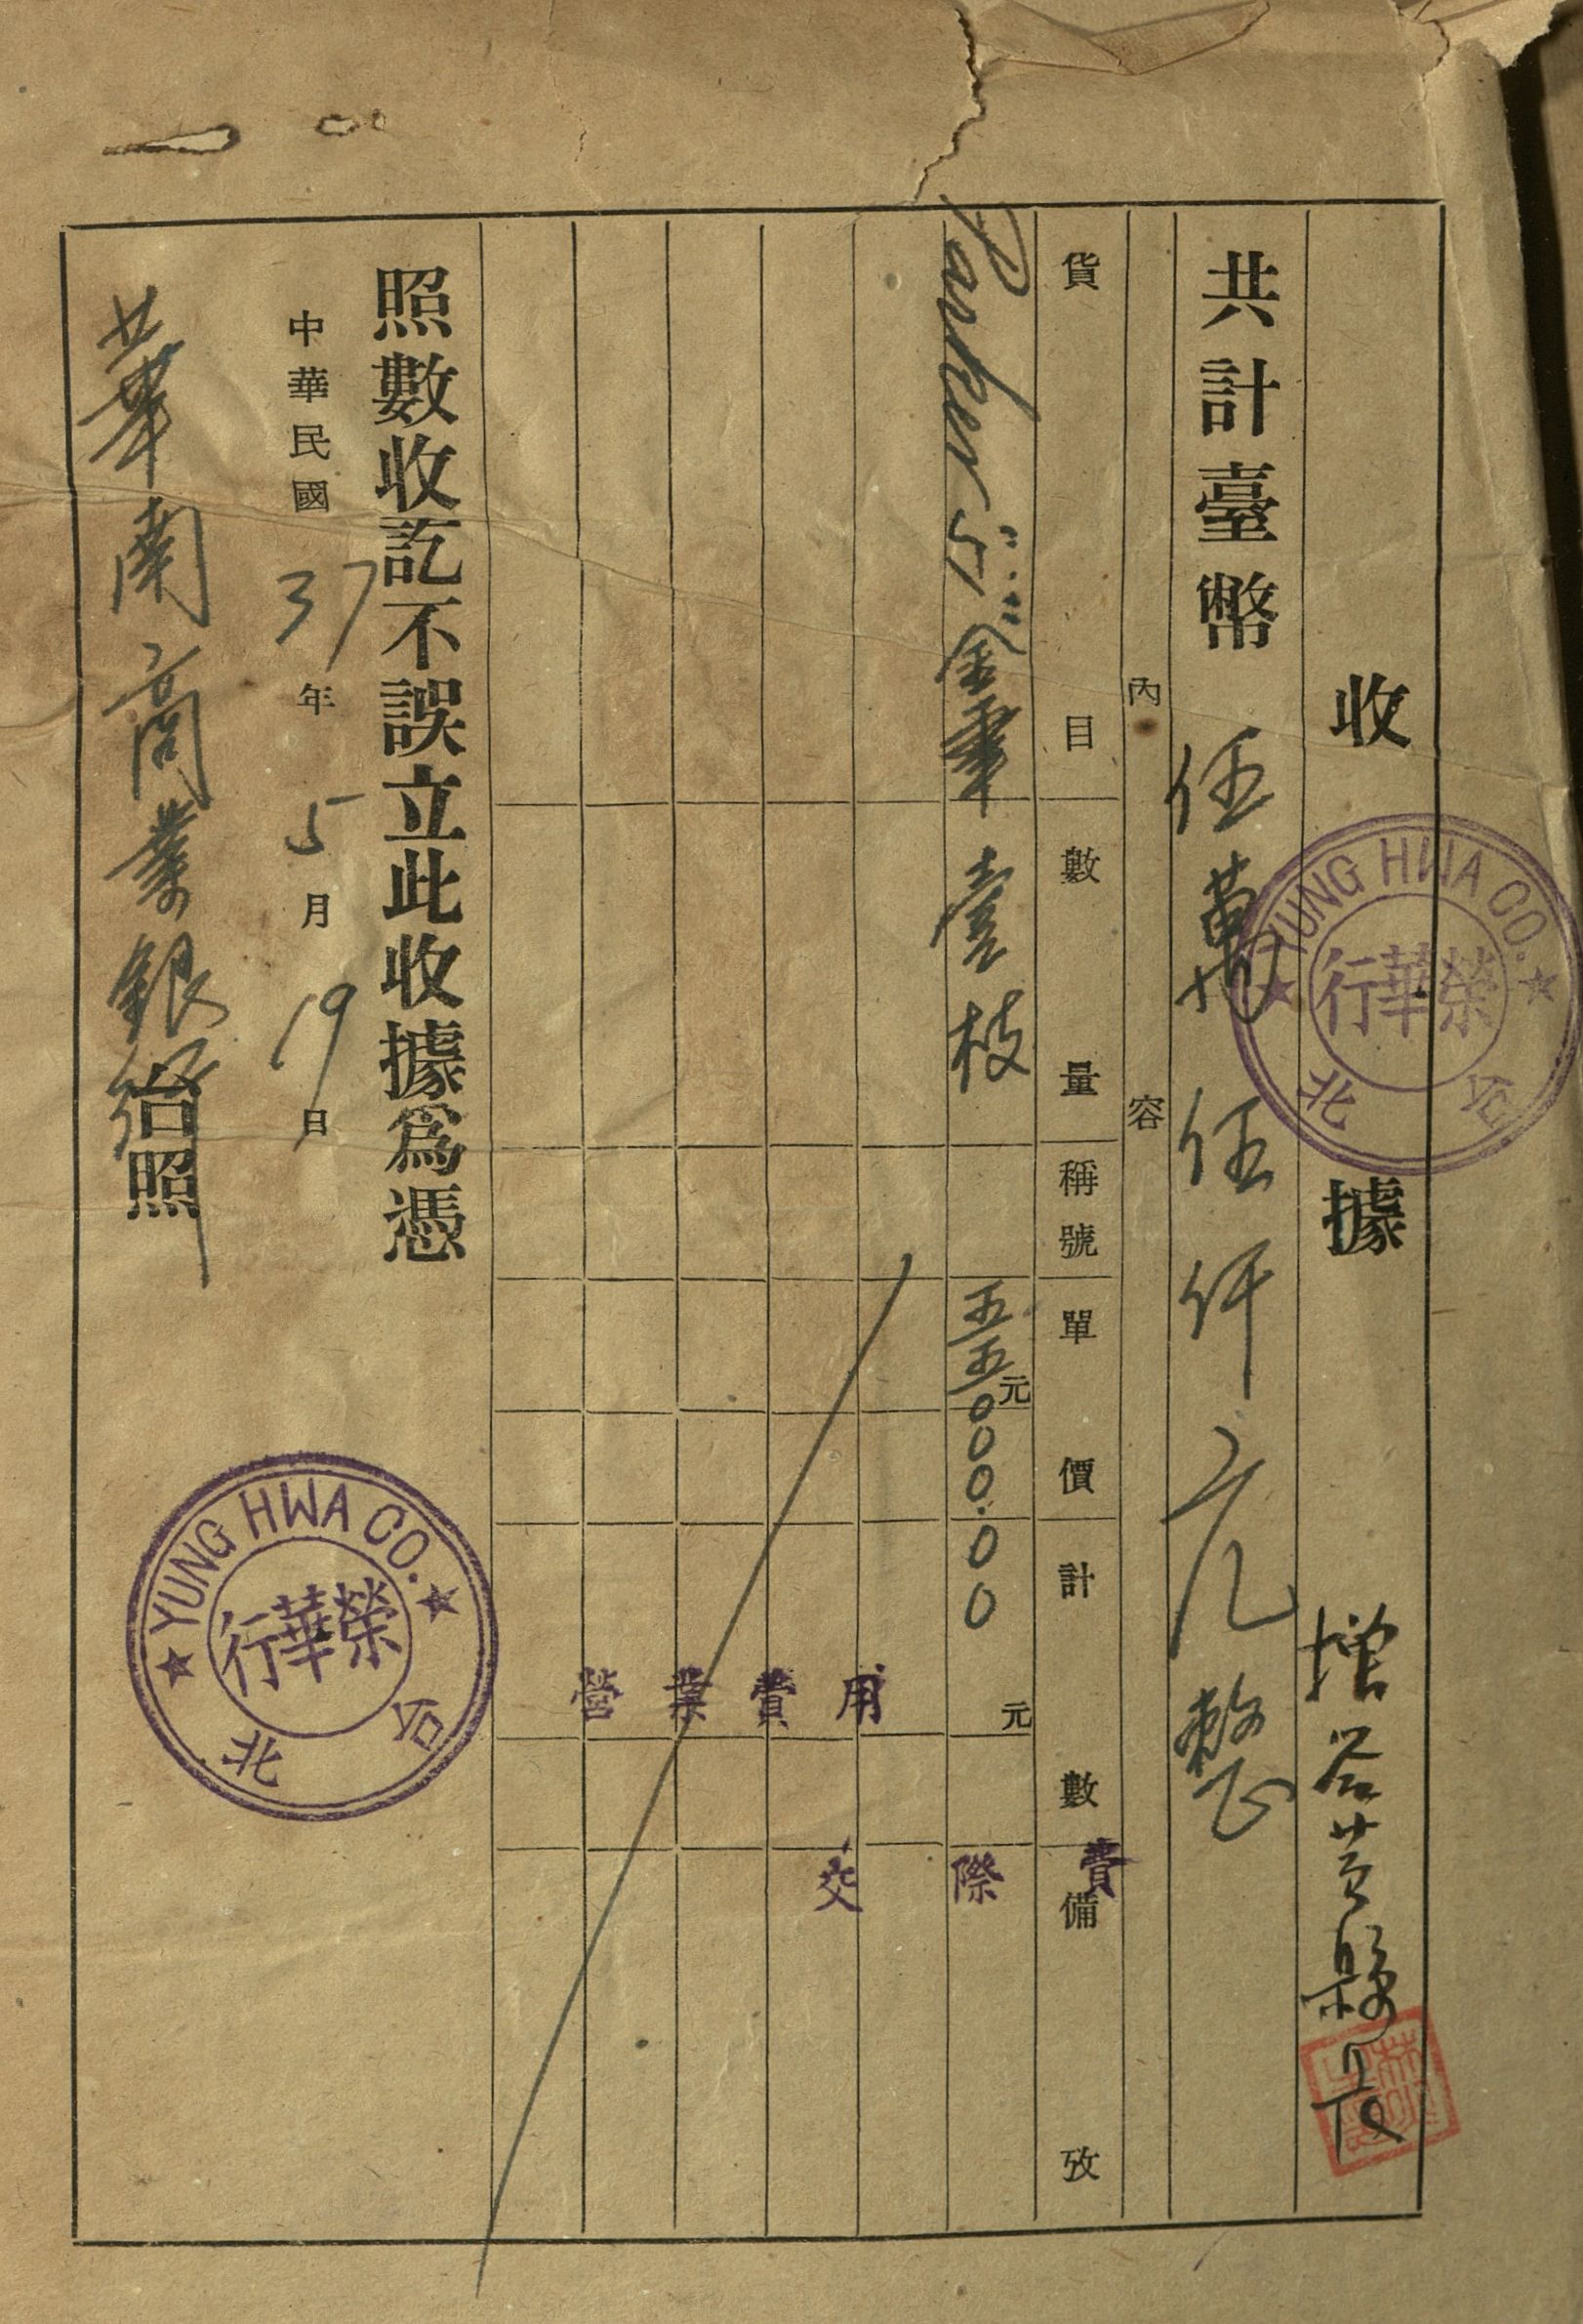 收據
共計臺幣 伍萬伍仟元整
內容
貨目 數量 稱號 單價 計數 備攷
Parker 51 金筆 壹枝 五五000.00
元 元
營業費用
交際費
照數收訖不誤立此收據爲憑
中華民國 37 年 5 月 19 日
華南商業銀行 台照
YUNG HWA CO.
榮華行
台北
YUNG HWA CO.
榮華行
台北